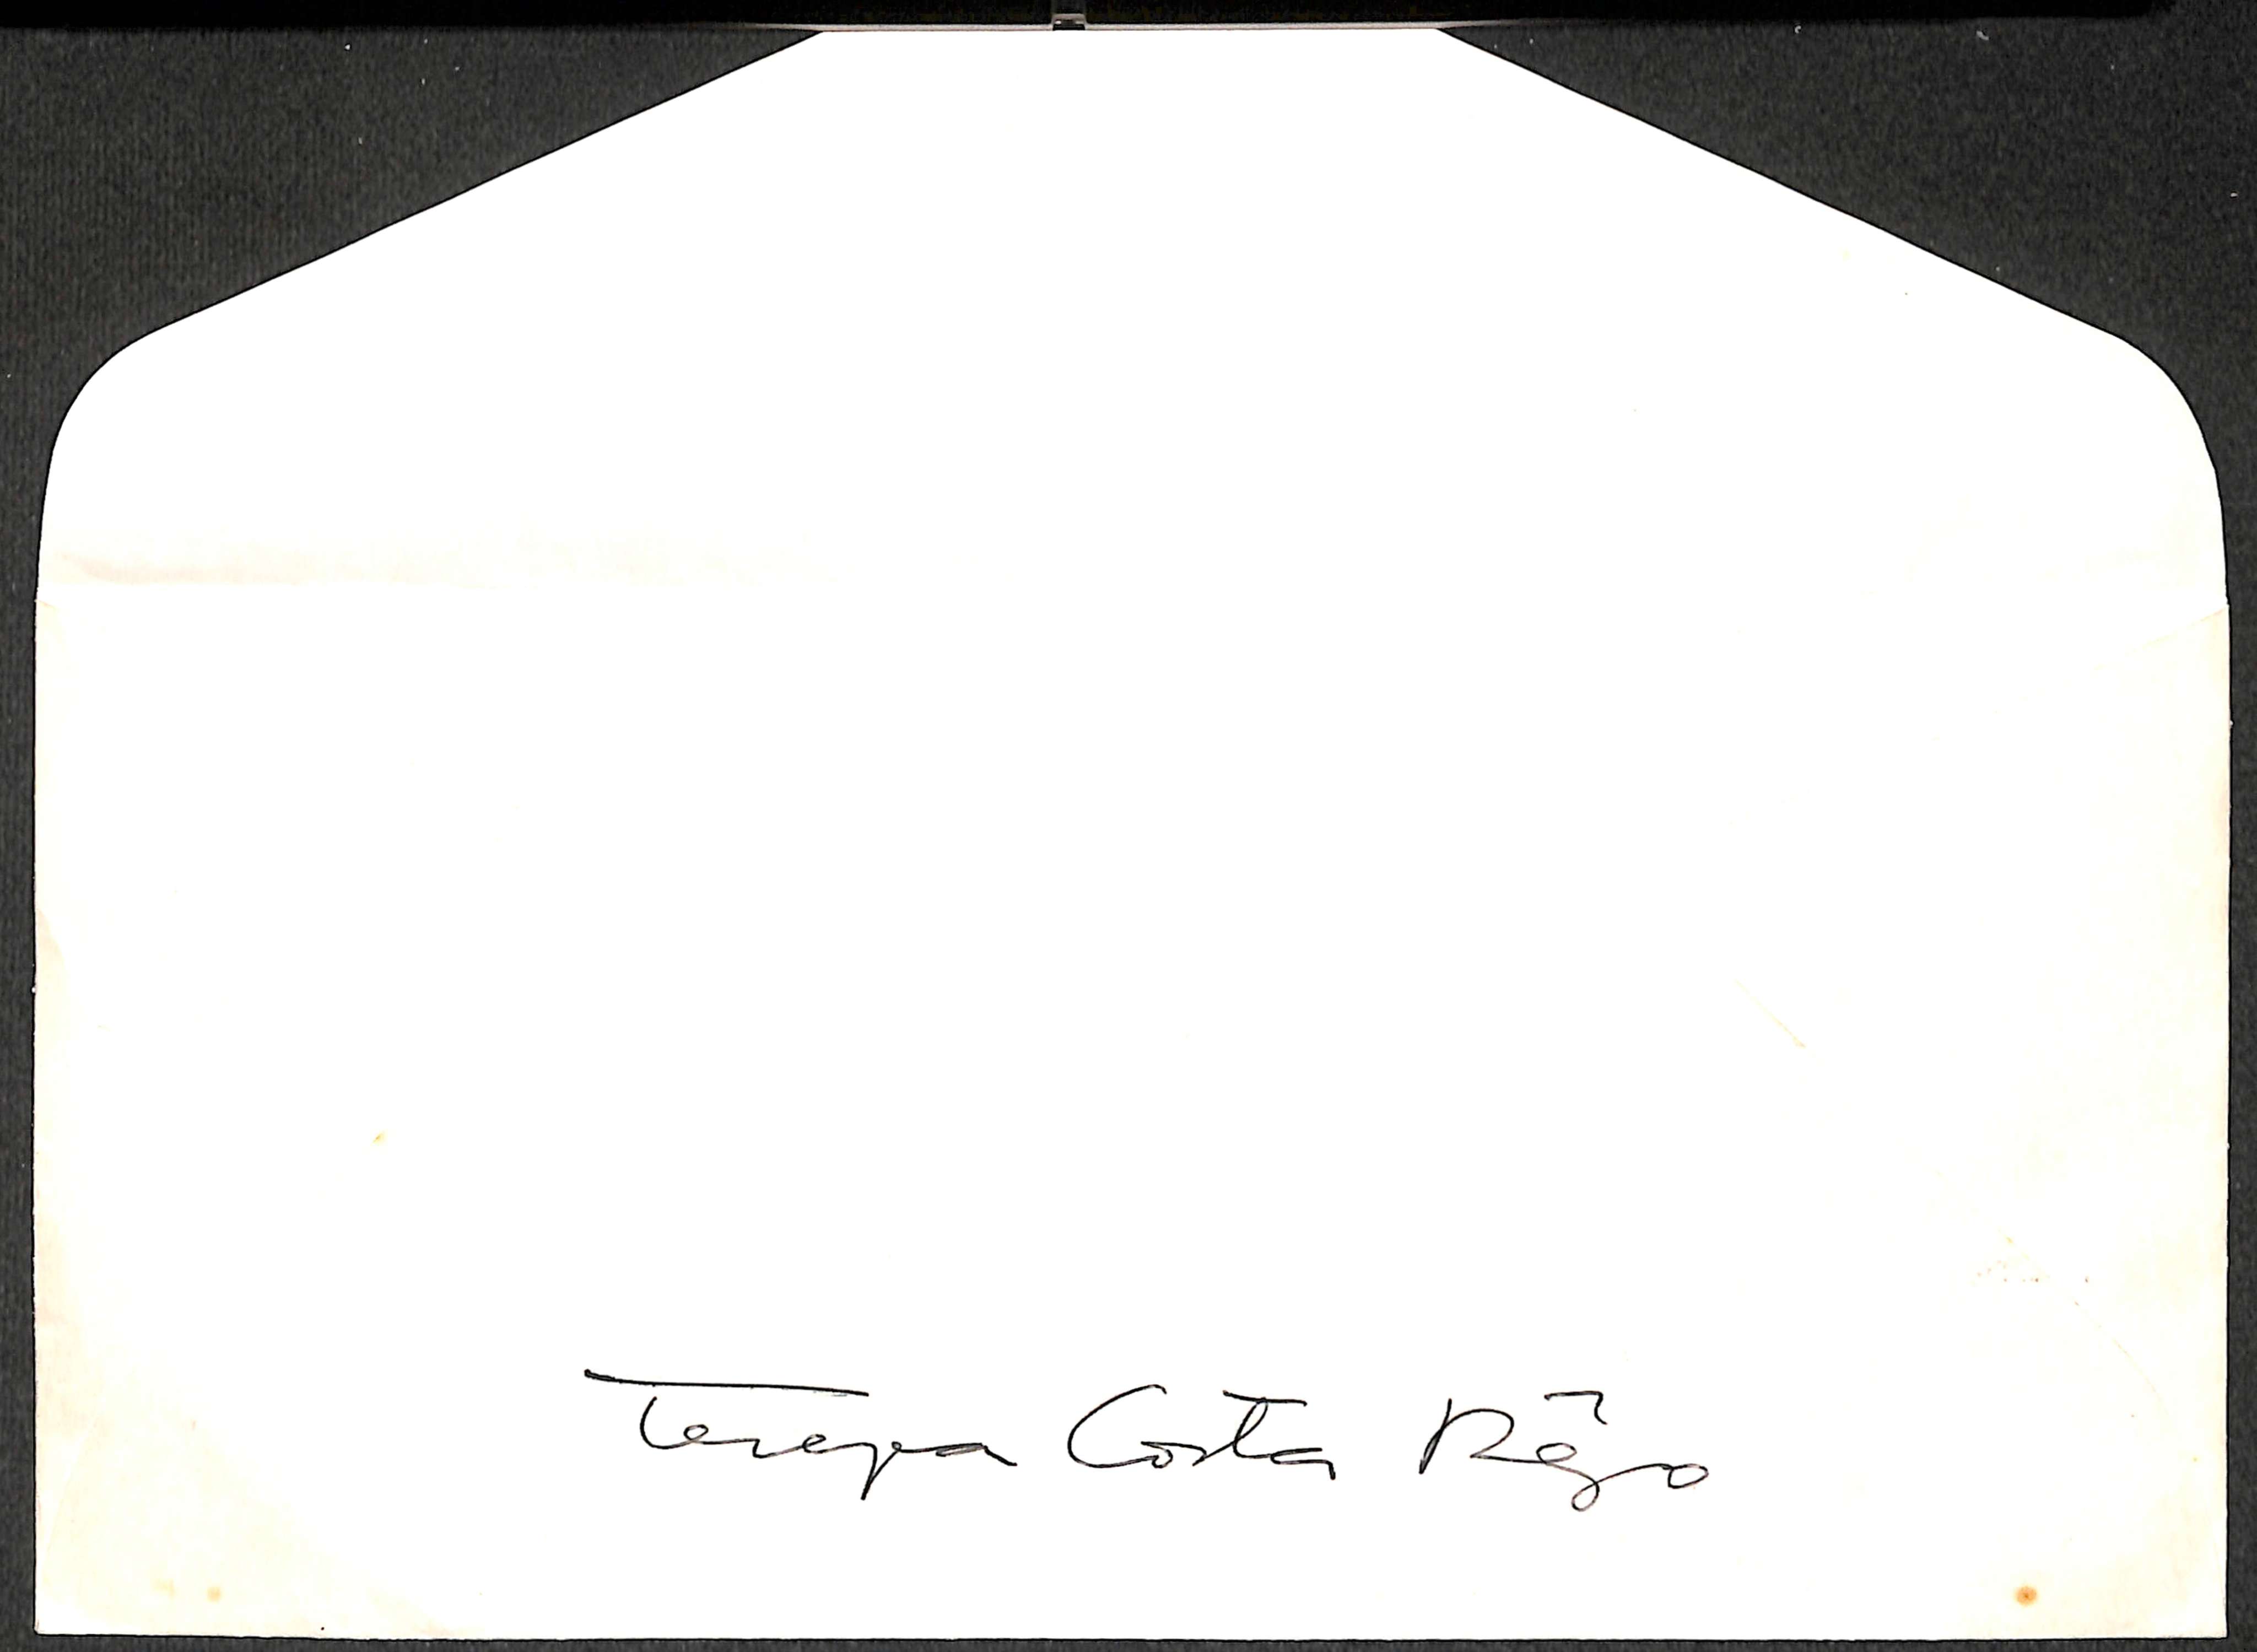 Tereza Costa Rêgo